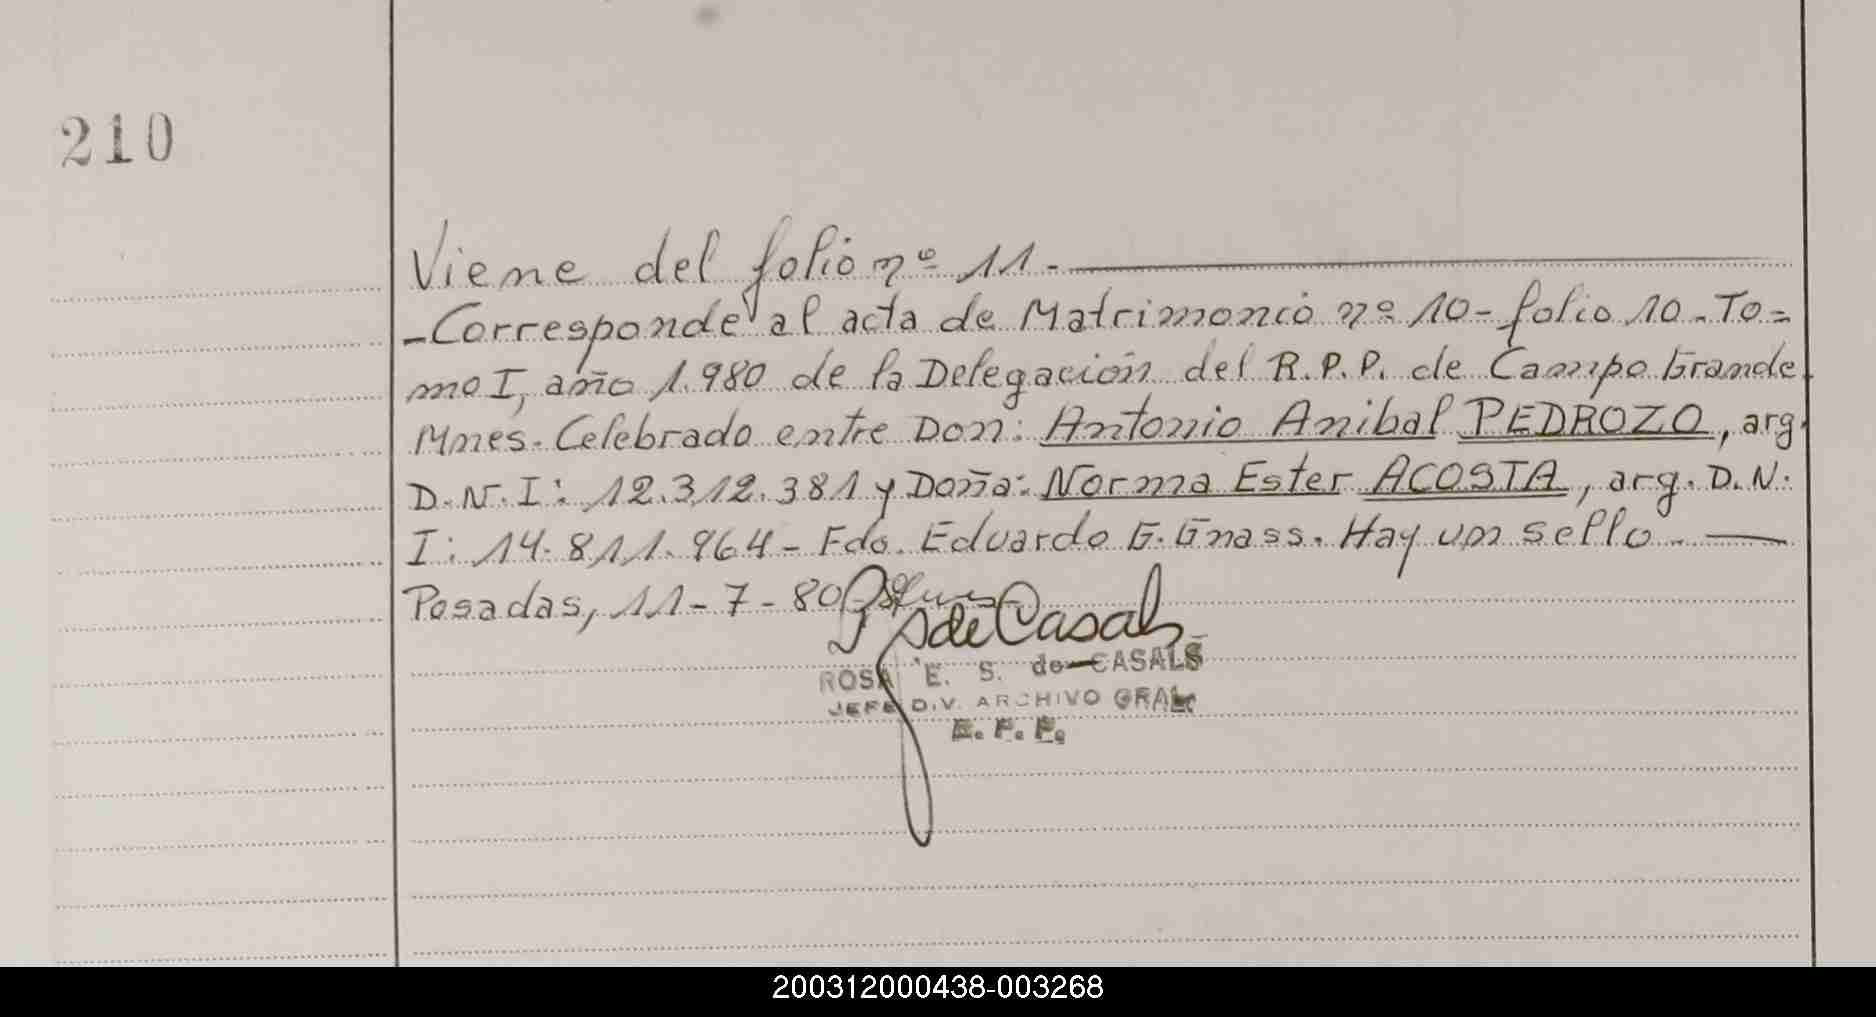 210
Viene del folio nº 11.
-Corresponde al acta de Matrimonio nº 10- folio 10. To=
mo I, año 1.980 de la Delegación del R.P.P. de Campo Grande.
Mnes. Celebrado entre Don: Antonio Anibal PEDROZO, arg.
D.N.I: 12.312.381 y Doña: Norma Ester ACOSTA, arg. D.N.
I: 14.811.964- Fdo. Eduardo G. Gnass. Hay un sello.
Posadas, 11-7-80
S de Casals
ROSA E. S. de CASALS
JEFE DIV. ARCHIVO GRAL.
200312000438-003268